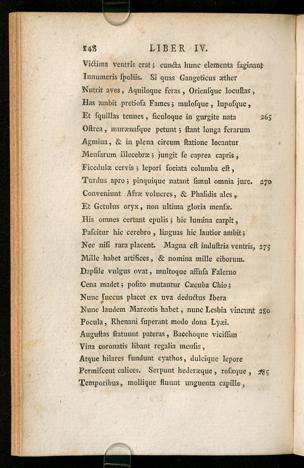 148 LIBER IV.
Victima ventris erat; cuncta hunc elementa saginant
Innumeris spoliis. Si quas Gangeticus æther
Nutrit aves, Aquiloque feras, Oriensque locustas,
Has ambit pretiosa Fames; mulosque, luposque,
Et squillas tennes, sceloque in gurgite nata 265
Ostrea, murænasque petunt; stant longa ferarum
Agmina, & in plena circum statione locantur
Mensarum illecebræ; jungit se caprea capris,
Ficedulæ cervis; lepori sociata columba est,
Turdus apro; pinguique natant simul omnia jure. 270
Conveniunt Afræ volucres, & Phasidis ales,
Et Getulus oryx, non ultima gloria mensæ.
His omnes certant epulis; hic lumina carpit,
Pascitur hic cerebro, linguas hic lautior ambit;
Nec nisi rara placent. Magna est industria ventris, 275
Mille habet artifices, & nomina mille ciborum.
Dapsile vulgus ovat, multoque affusa Falerno
Cena madet; posito mutantur Cæcuba Chio;
Nunc succus placet ex uva deductus Ibera
Nunc laudem Mareotis habet, nunc Lesbia vincunt 280
Pocula, Rhenani superant modo dona Lyæi.
Augustas statuunt pateras, Bacchoque vicissim
Vina coronatis libant regalia mensis,
Atque hilares fundunt cyathos, dulcique lepore
Permiscent calices. Serpunt hederæque, rosæque, 285
Temporibus, mollique fluunt unguenta capillo,